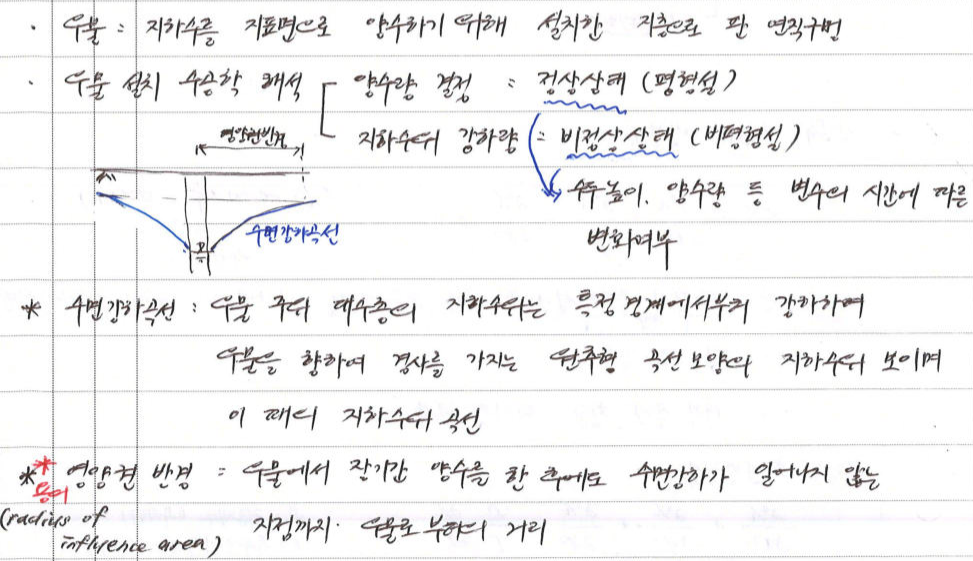 · 우물 : 지하수를 지표면으로 양수하기 위해 설치한 지층으로 판 연직구멍
· 우물 설치 수공학 해석 양수량 결정 : 정상상태 (평형설)
지하수위 강하량 : 비정상상태 (비평형설)
영향권반경
수면강하곡선
수두높이, 양수량 등 변수의 시간에 따른
변화여부
* 수면강하곡선 : 우물 주위 대수층의 지하수위는 특정 경계에서부터 강하하며
우물을 향하여 경사를 가지는 원추형 곡선 모양의 지하수위 보이며
이 때의 지하수위 곡선
** 영향권 반경 : 우물에서 장기간 양수를 한 후에도 수면강하가 일어나지 않는
용어
(radius of
influence area)
지점까지. 우물로부터의 거리